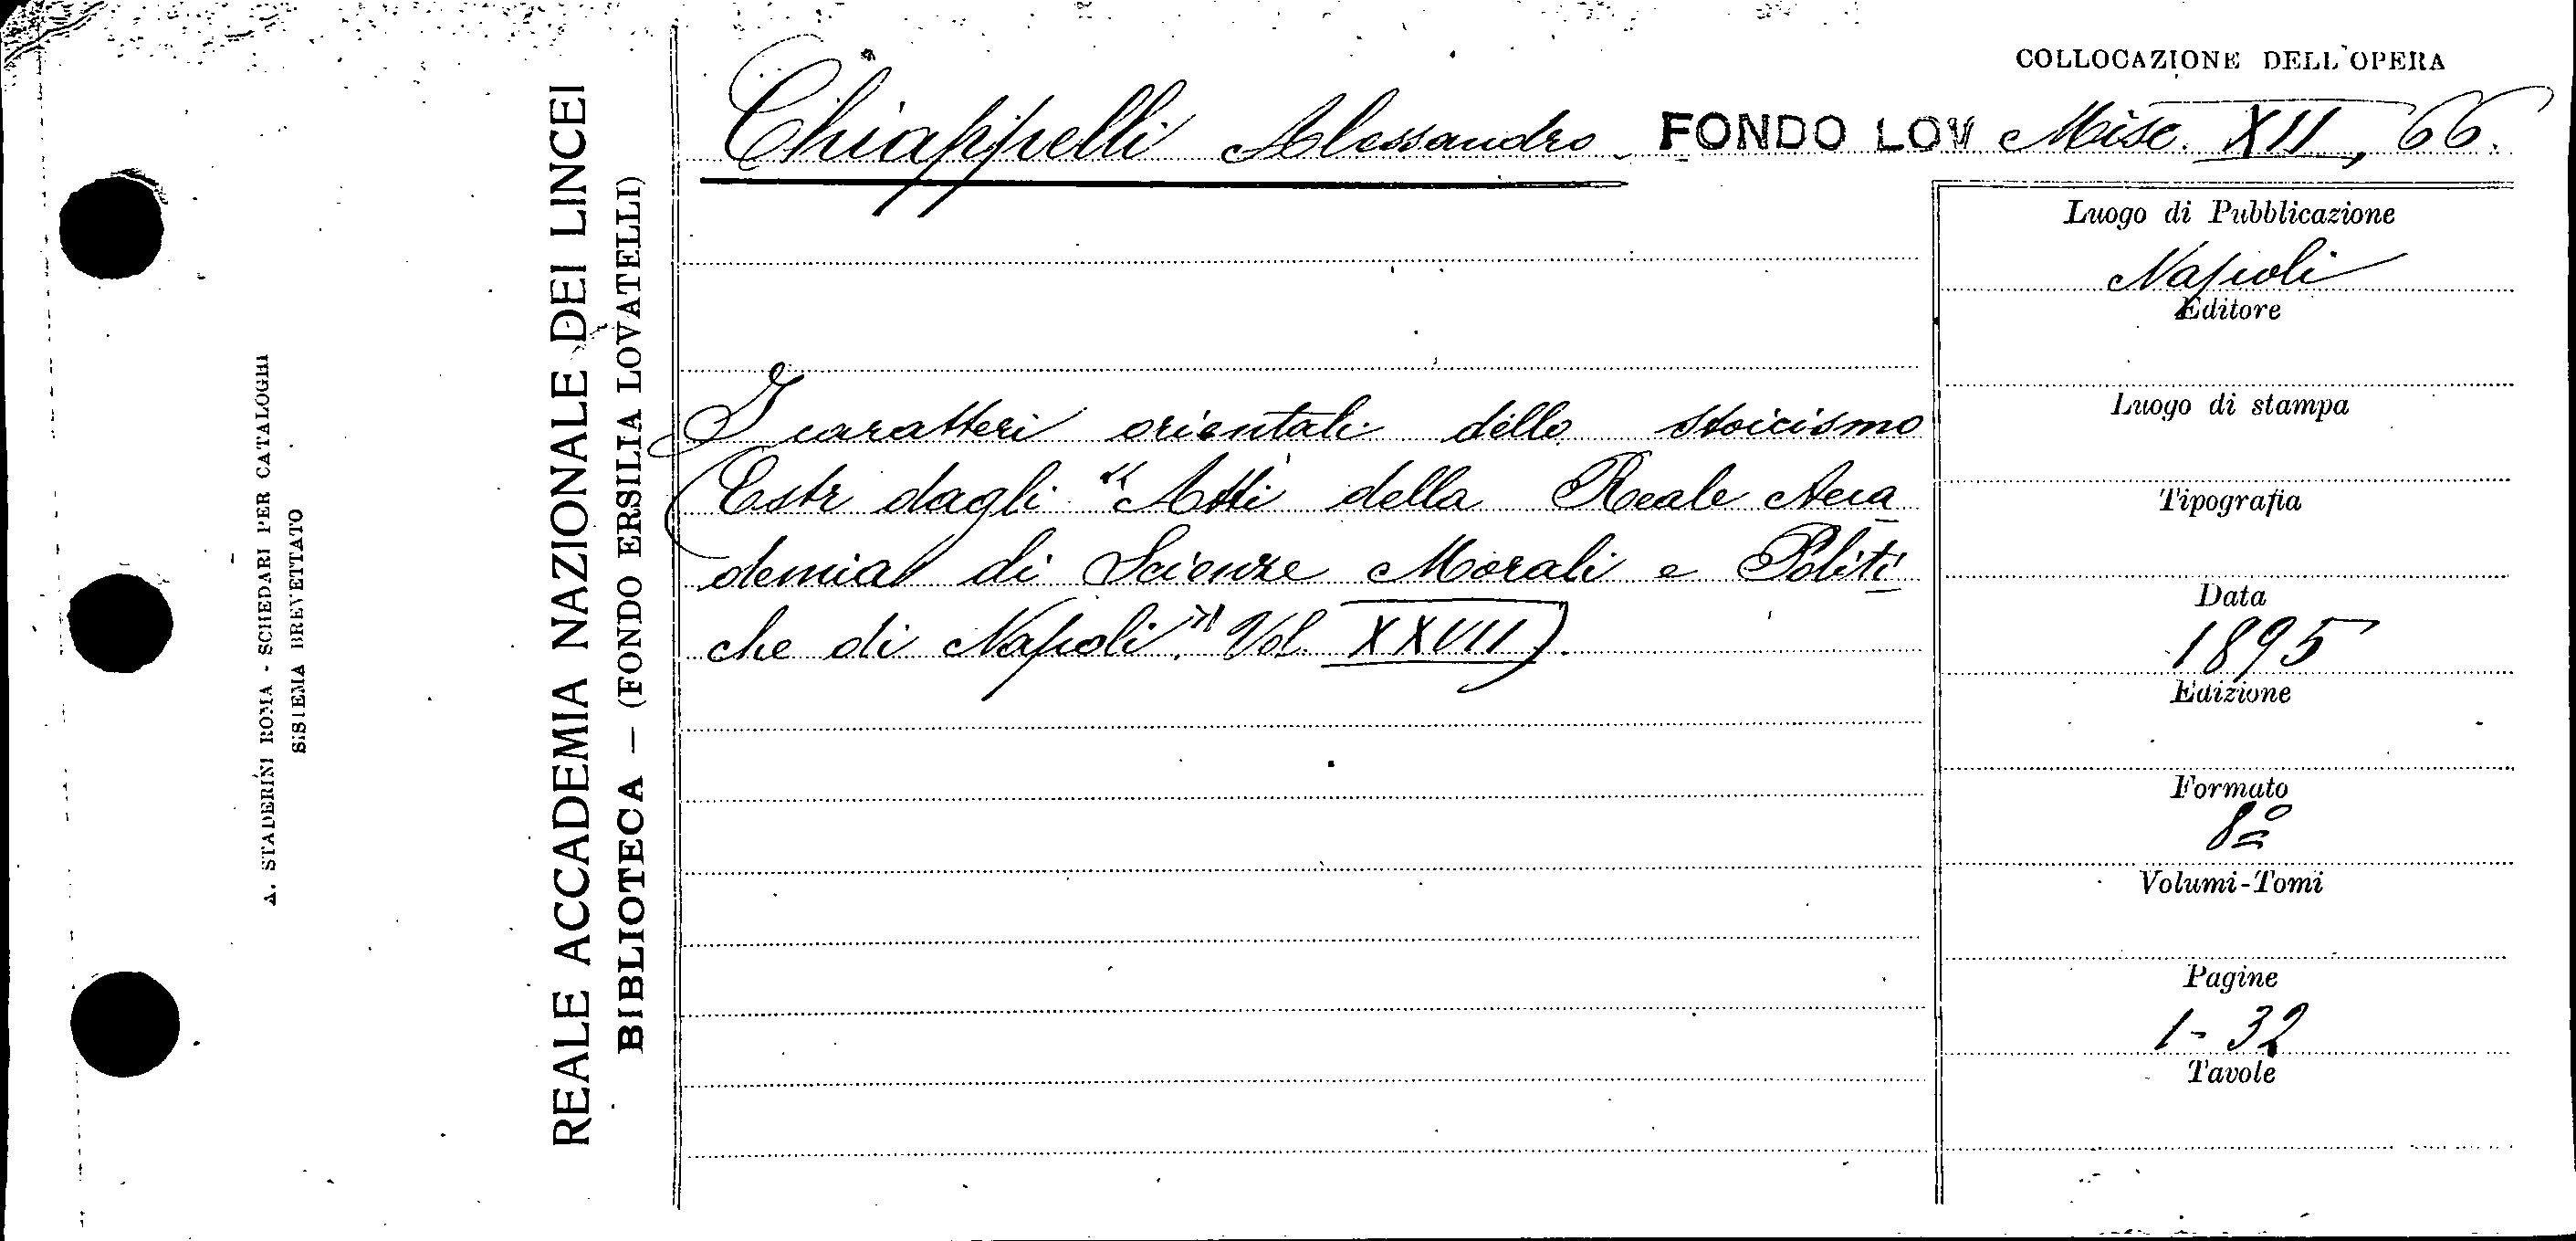 COLLOCAZIONE DELL'OPERA
Chiappelli Alessandro FONDO LOV Misc. XII, 66.
I caratteri orientali dello stoicismo
(Estr dagli "Atti della Reale Acca
demia di Scienze Morali e Politi
che di Napoli." Vol. XXVII).
Luogo di Pubblicazione
Napoli
Editore
Luogo di stampa
Tipografia
Data
1895
Edizione
Formato
8º
Volumi-Tomi
Pagine
1-32
Tavole
REALE ACCADEMIA NAZIONALE DEI LINCEI
BIBLIOTECA — (FONDO ERSILIA LOVATELLI)
A. STADERINI ROMA - SCHEDARI PER CATALOGHI
SISTEMA BREVETTATO